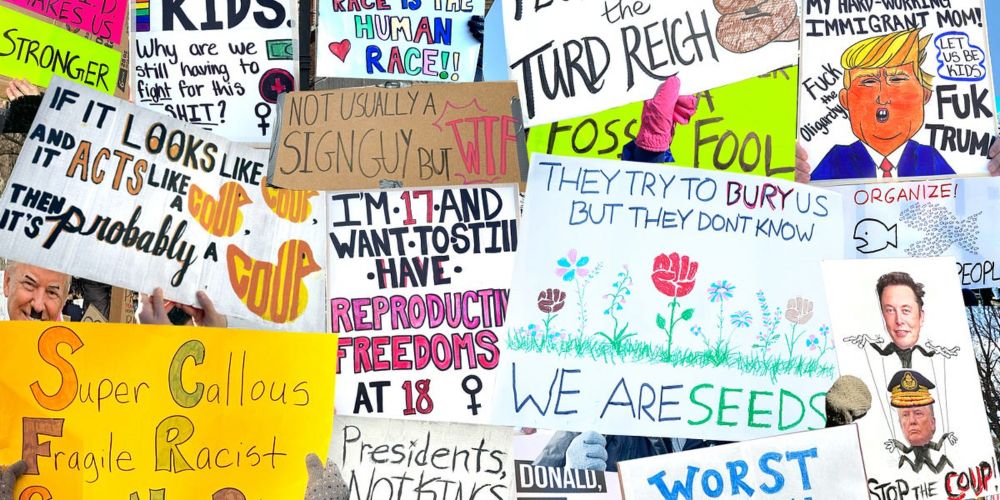 MAKES US
STRONGER
KIDS.
Why are we
still having to
fight for this
SHIT?
RACE IS THE
HUMAN
RACE!!
the
TURD REICH
MY HARD-WORKING
IMMIGRANT MOM!
Fuck
the
Oligarchy
LET
US BE
KIDS!
FUK
TRUMP
NOT USUALLY A
SIGN GUY BUT WTF
FOOL
IF IT LOOKS LIKE
AND IT ACTS LIKE
A COUP, COUP,
THEN
IT'S probably A
COUP
I'M 17 AND
WANT TO STILL
HAVE
REPRODUCTIV
FREEDOMS
AT 18
THEY TRY TO BURY US
BUT THEY DONT KNOW
WE ARE SEEDS
ORGANIZE!
PEOPL
STOP THE COUP!
Super Callous
Fragile Racist
Presidents,
NOT KINGS
DONALD,
WORST